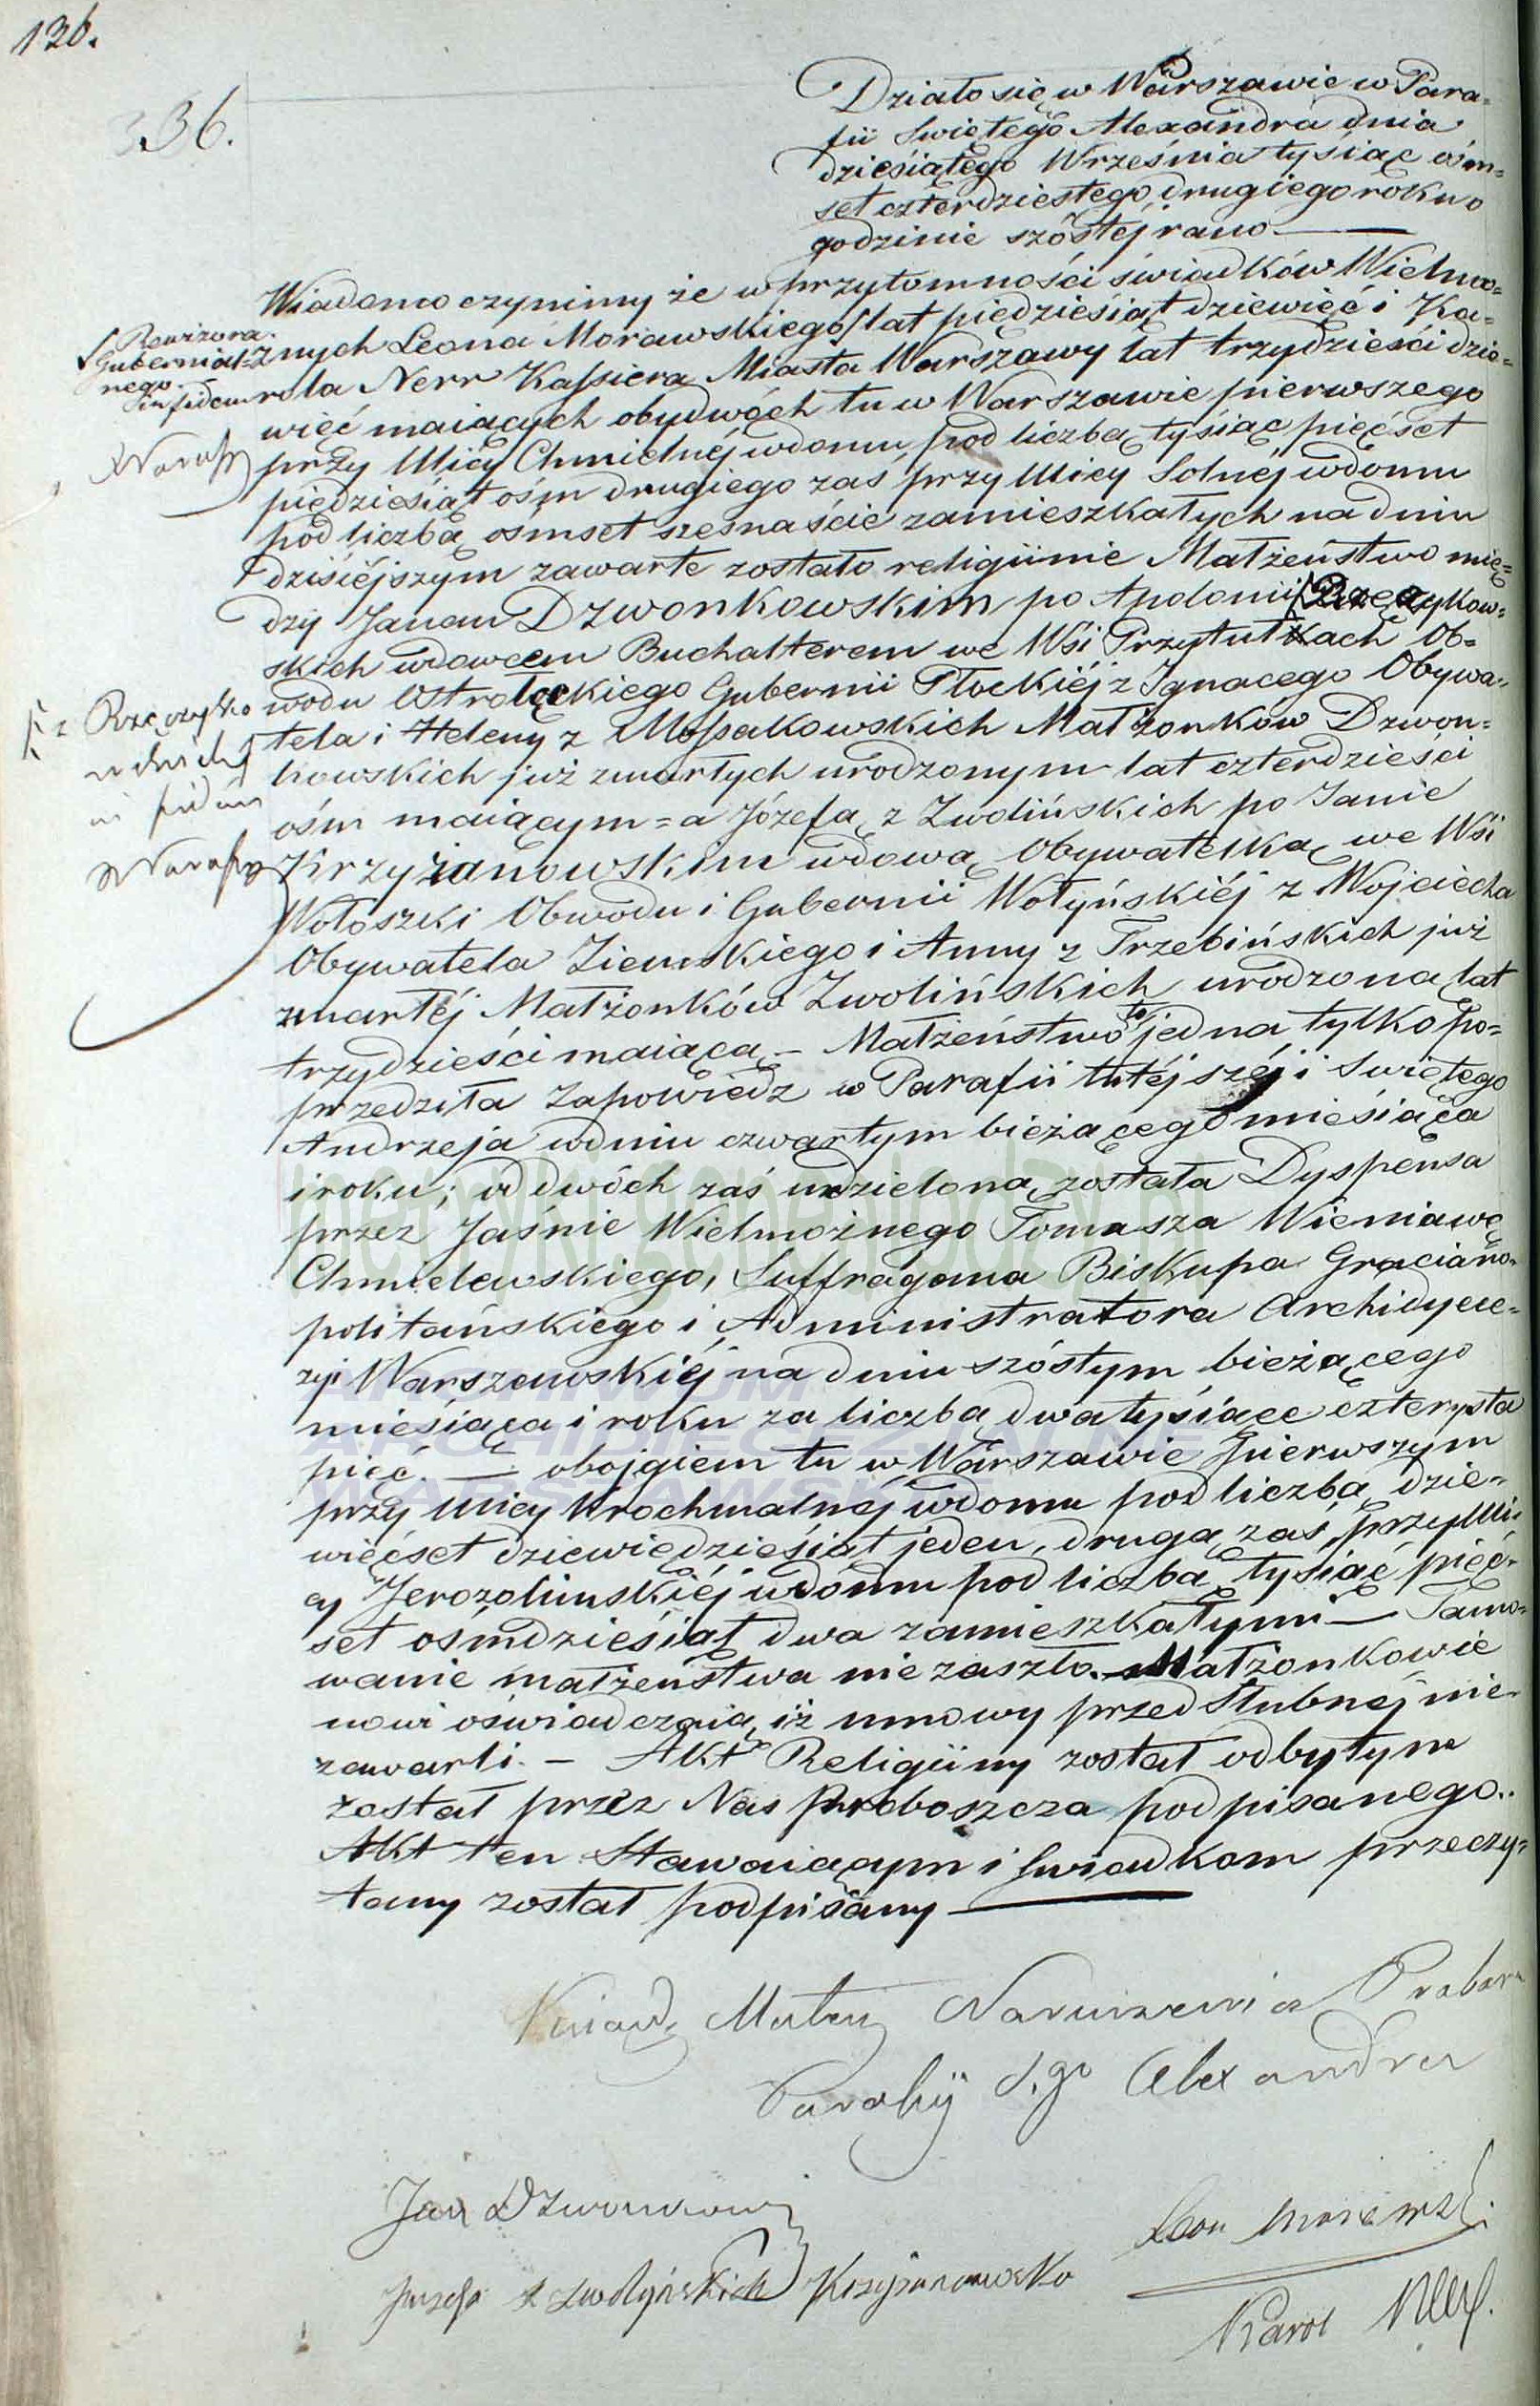 136.
336.
Działo się w Warszawie w Para=
fii Swiętego Alexandra dnia
dziesiątego Września tysiąc ośm=
set czterdziestego drugiego roku o
godzinie szóstéj rano
Wiadomo czynimy że w przytomności świadków Wielmo=
żnych Leona Morawskiego lat piędziesiąt dziewięć i Ka=
rola Nerr Kassiera Miasta Warszawy lat trzydzieści dzie=
więć maiących obydwóch tu w Warszawie pierwszego
przy Ulicy Chmielnéj w domu pod liczbą tysiąc pięćset
piędziesiąt ośm drugiego zaś przy Ulicy Solnéj w domu
pod liczbą ośmset szesnaście zamieszkałych na dniu
dzisiéjszym zawarte zostało religiinie Małżeństwo mię=
dzy Janem Dzwonkowskim po Apolonii Rzęczykow=
skich wdowcem Buchalterem we Wsi Przytułkach Ob=
wodu Ostrołęckiego Gubernii Płockiéj z Ignacego Obywa=
tela i Heleny z Mossakowskich Małżonków Dzwon=
kowskich już zmarłych urodzonym lat czterdzieści
ośm maiącym = a Józefą z Zwolińskich po Janie
Krzyżanowskim wdową Obywatelką we Wsi
Wołoszki Obwodu i Gubernii Wołyńskiéj z Wojciecha
Obywatela Ziemskiego i Anny z Trzebińskich już
zmarłéj Małżonków Zwolińskich urodzoną lat
trzydzieści maiącą – Małżeństwo to jedna tylko po=
przedziła Zapowiedz w Parafii tutéjszéj i Swiętego
Andrzeja w dniu czwartym bieżącego miesiąca
i roku; od dwóch zaś udzielona została Dyspensa
przez Jaśnie Wielmożnego Tomasza Wieniawę
Chmielewskiego, Suffragana Biskupa Graciano=
politańskiego i Administratora Archidyece=
zyi Warszawskiéj na dniu szóstym bieżącego
miesiąca i roku za liczbą dwa tysiące czterysta
pięć. — obojgiem tu w Warszawie Pierwszym
przy Ulicy Krochmalnéj w domu pod liczbą dzie=
więćset dziewiędziesiąt jeden, drugą zaś przy Uli
cy Jerozolimskiéj w domu pod liczbą tysiąc pięć=
set ośmdziesiąt dwa zamieszkałymi — Tamo=
wanie małżeństwa nie zaszło. Małżonkowie
nowi oświadczaią iż umowy przedślubnéj nie
zawarli. – Akt Religiiny został odbytym
został przez Nas Proboszcza podpisanego.
Akt ten Stawaiącym i Swiadkom przeczy=
tany został podpisany
Rewizora
Gubernial=
nego
in fidem
z Rzęczyko
wskich
in fidem
Xiądz Mateusz Naruszewicz Probosz
Parafij S.go Alexandra
Jan Dzwonkowski
Józefa z Zwolyńskich Krzyżanowska
Leon Morawski.
Karol Nerr.
metryki.genealodzy.pl
ARCHIWUM
ARCHIDIECEZJALNE
WARSZAWSKIE